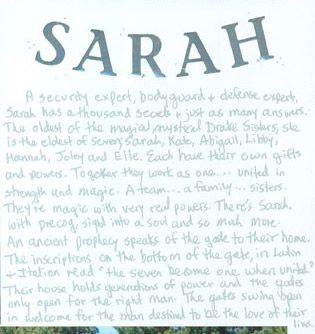 SARAH
A security expert, bodyguard & defense expert,
Sarah has a thousand secrets & just as many answers.
The oldest of the magical mysteried Drake Sisters, she
is the eldest of seven; Sarah, Kate, Abigail, Libby,
Hannah, Joley and Elle. Each have their own gifts
and powers. Together they work as one... united in
strength and magic. A team... a family... sisters.
They're magic with very real powers. There's Sarah,
with precog, sight into a soul and so much more.
An ancient prophecy speaks of the gate to their home.
The inscriptions on the bottom of the gate, in Latin
& Italian read "the seven become one when united."
Their house holds generations of power and the gates
only open for the right man. The gates swing open
in welcome for the man destined to be the love of their
lives.